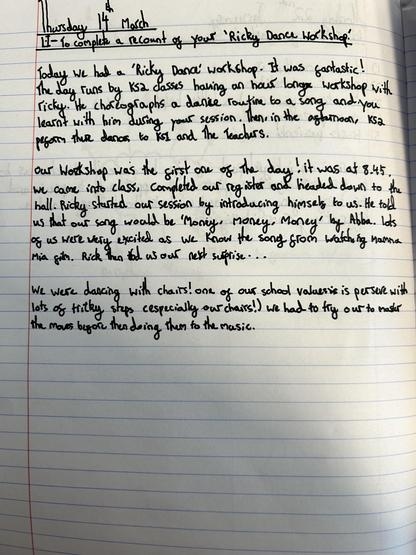 Thursday 14th March
LI- To complete a recount of your 'Ricky Dance Workshop'
Today we had a 'Ricky Dance' workshop. It was fantastic!
The day runs by KS2 classes having an hour longe workshop with
Ricky. He choreographs a dance routine to a song and you
learnt with him during your session. Then, in the afternoon, KS2
peform their dances to KS1 and the Teachers.
our Workshop was the first one of the day! it was at 8.45.
we came into class, Completed our register and headed down to the
hall. Ricky started our session by introducing himself to us. He told
us that our song would be 'Money, Money, Money' by Abba. lots
of us were very excited as we know the song from watching Mamma
Mia film. Rick then told us our next suprise...
We were dancing with chairs! one of our school values is persevere with
lots of tricky steps (especially our chairs!) we had to try our to master
the moves before then doing them to the music.